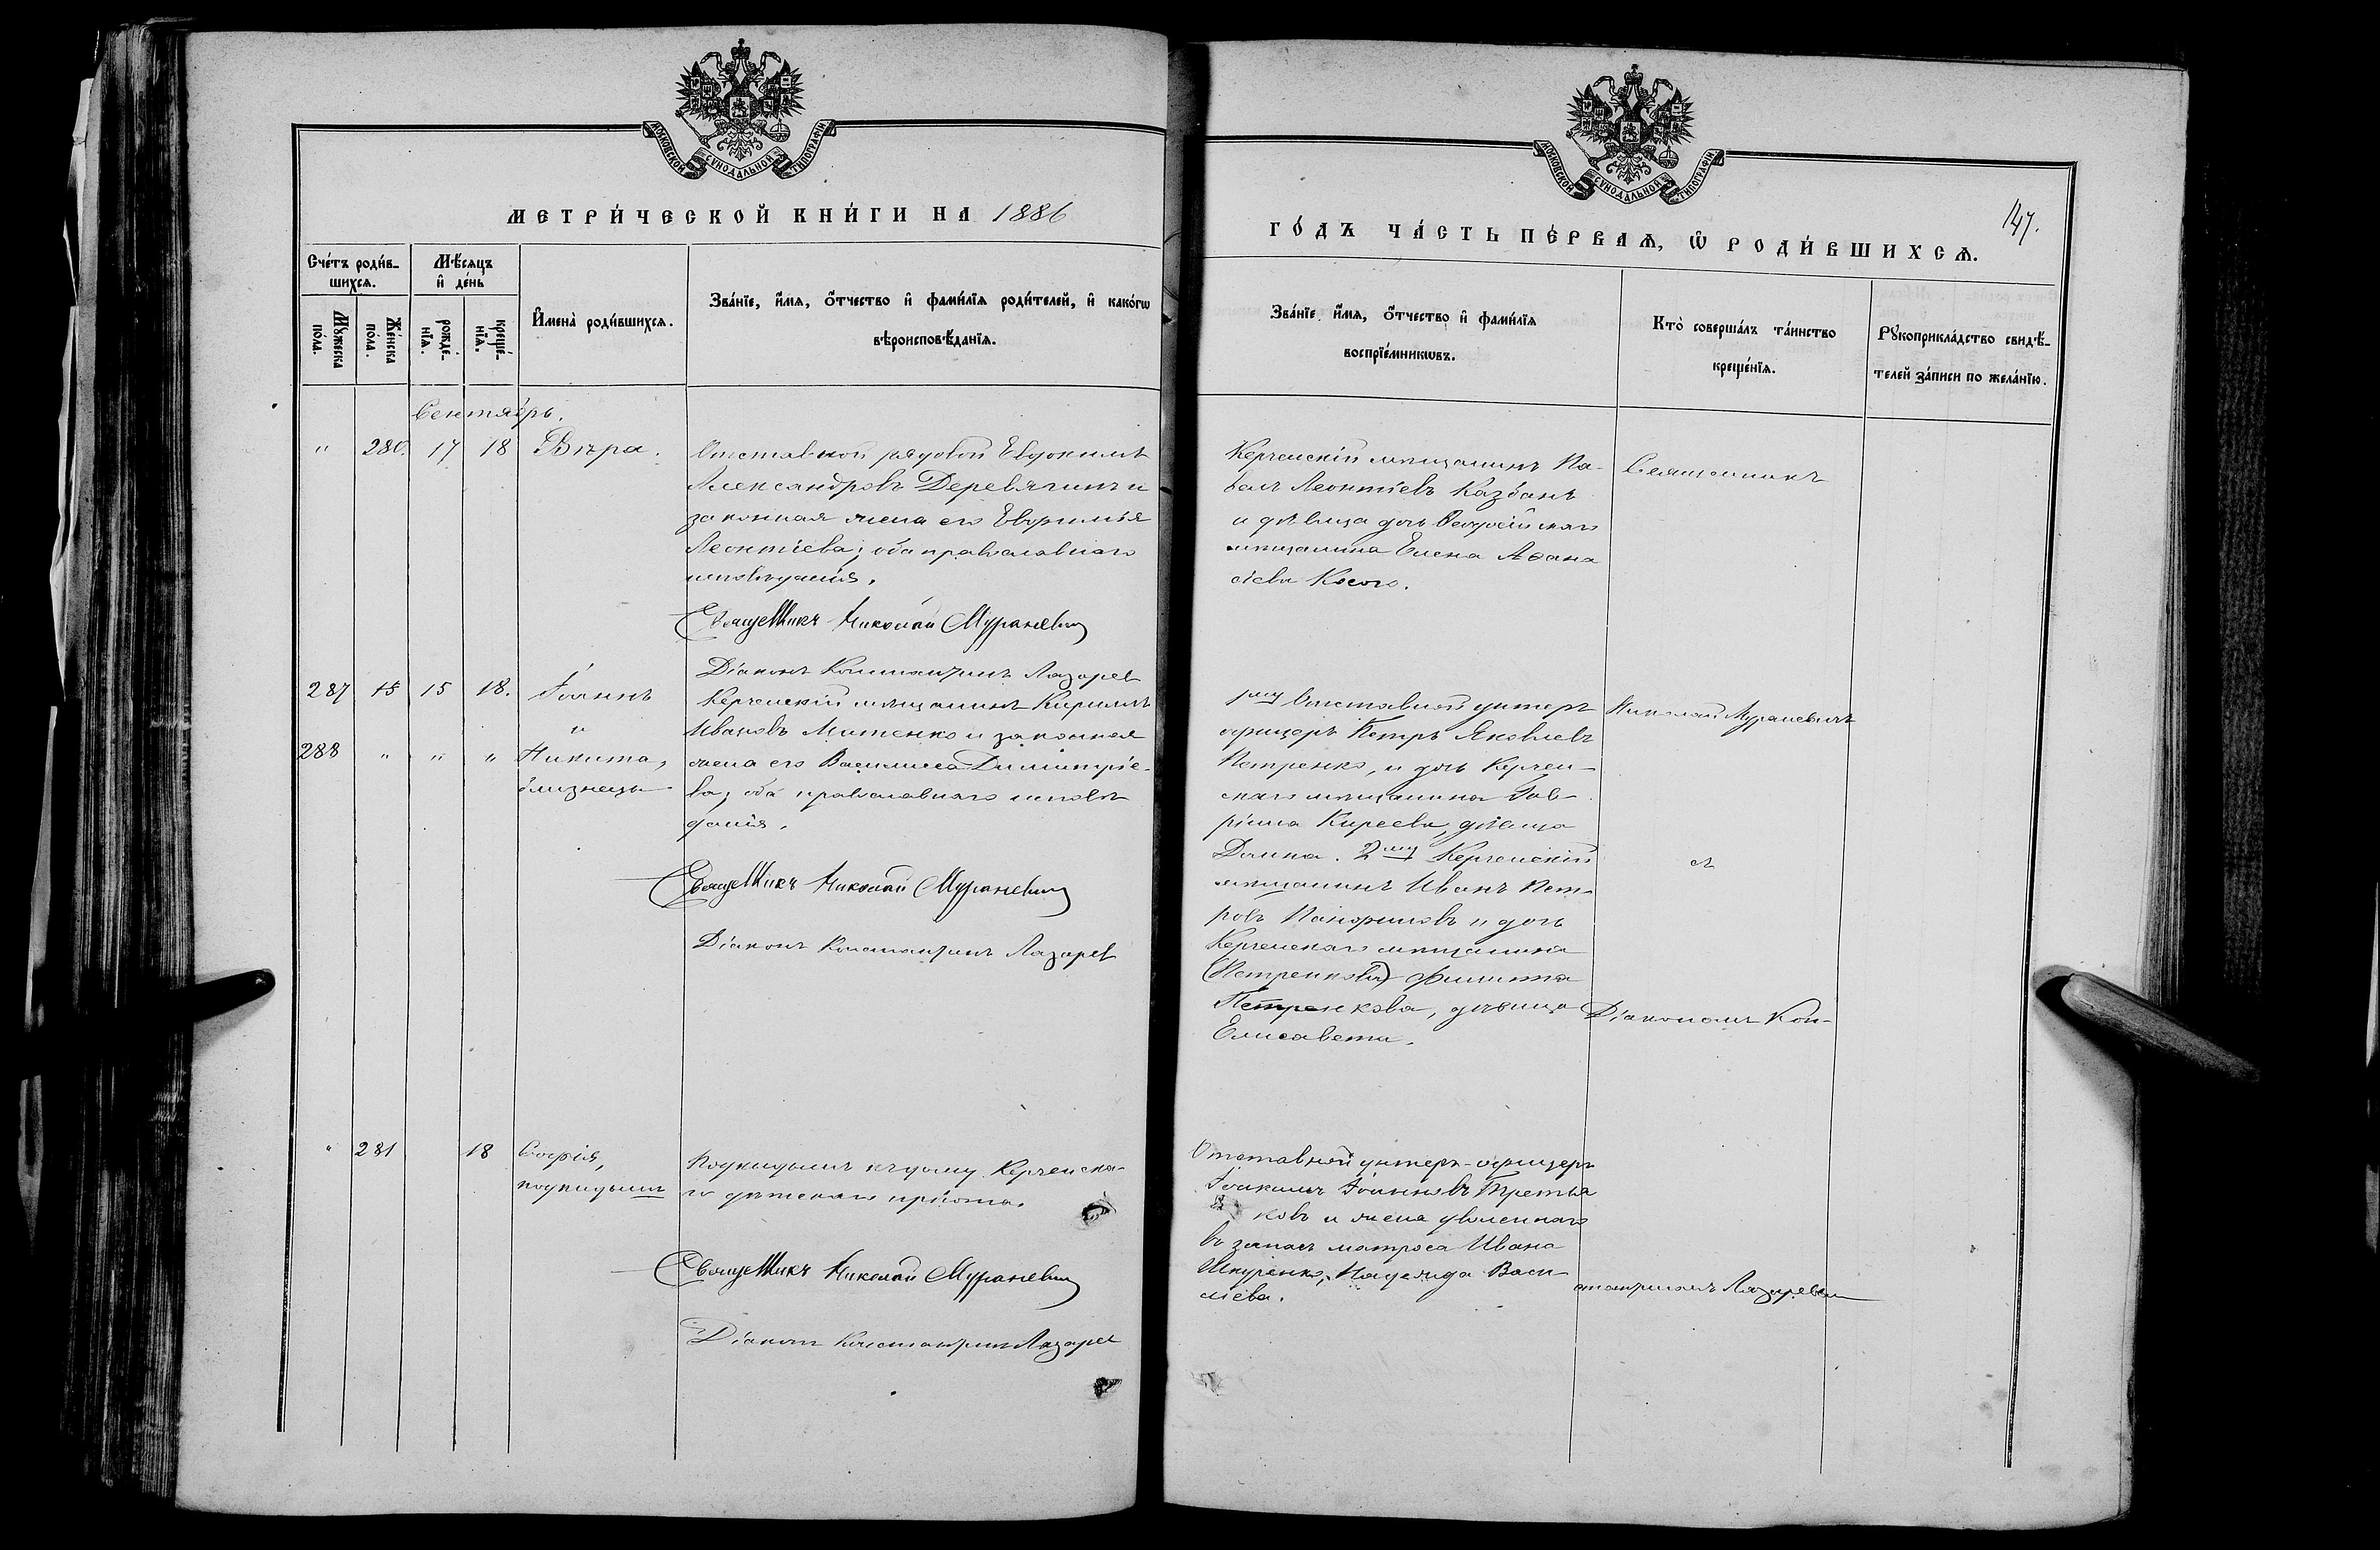 МОСКОВСКОЙ СѴНОДАЛЬНОЙ ТИПОГРАФІИ
МЕТРИ́ЧЕСКОЙ КНИ́ГИ НА 1886
Сче́тъ роди́вшихсѧ.
Мѣ́сяцъ и҆ де́нь
Мꙋ́жеска по́ла.
Же́нска по́ла.
рожде́нїѧ.
креще́нїѧ.
И҆мена̀ роди́вшихсѧ.
Зва́нїе, и҆́мѧ, ѻ҆́тчество и҆ фами́лїѧ роди́телей, и҆ како́гѡ
вѣроисповѣ́данїѧ.
Сентябрь.
" 280. 17 18 Вѣра.
Отставной рядовой Евдокимъ
Александровъ Деревягинъ и
законная жена его Евфимія
Леонтіева; оба православнаго
исповѣданія.
Священникъ Николай Мураневич
Діаконъ Константинъ Лазарев
287 15 15 18. Іоаннъ
и
288 " " " Никита,
близнецы
Керченскій мѣщанинъ Кириллъ
Ивановъ Митенко и законная
жена его Василиса Димитріе-
ва; оба православнаго исповѣ
данія.
Священникъ Николай Мураневич
Діаконъ Константинъ Лазарев
" 281 18 Софія,
подкидышъ
Подкидышъ къ дому Керченска-
го дѣтскаго пріюта.
Священникъ Николай Мураневич
Діаконъ Константинъ Лазарев
МОСКОВСКОЙ СѴНОДАЛЬНОЙ ТИПОГРАФІИ
147.
ГО́ДЪ ЧА́СТЬ ПЕ́РВАѦ, Ѡ҆ РОДИ́ВШИХСѦ.
Зва́нїе, и҆́мѧ, ѻ҆́тчество и҆ фами́лїѧ
воспрїе́мникѡвъ.
Кто̀ соверша́лъ та́инство
креще́нїѧ.
Рꙋкоприкла́дство свидѣ́-
телей за́писи по жела́нїю.
Керченскій мѣщанинъ Па-
велъ Леонтіевъ Казбанъ
и дѣвица дочь Ѳеодосійскаго
мѣщанина Елена Аѳана
сіева Косого.
Священникъ
1му Отставной унтеръ
офицеръ Петръ Яковлевъ
Петренко, и дочь Керчен-
скаго мѣщанина Гав-
ріила Киреева, дѣвица
Домна. 2му Керченскій
мѣщанинъ Иванъ Пет-
ровъ Панфиловъ и дочь
Керченскаго мѣщанина
(Петренкова) Филиппа
Петренкова, дѣвица
Елисавета.
Николай Мураневичъ
съ
Діакономъ Кон-
Отставной унтеръ-офицеръ
Іоакимъ Іоанновъ Третья
ковъ и жена уволеннаго
въ запасъ матроса Ивана
Шкуренко, Надежда Васи
ліева.
стантиномъ Лазаревым